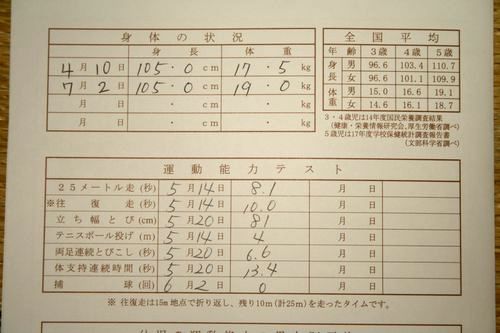 身体の状況
身長 体重
4月10日 105.0cm 17.5kg
7月2日 105.0cm 19.0kg
月 日 ・ cm ・ kg
月 日 ・ cm ・ kg
全国平均
年齢 3歳 4歳 5歳
身長 男 96.6 103.4 110.7
女 96.6 101.1 109.9
体重 男 15.0 16.6 19.1
女 14.6 16.1 18.7
3・4歳児は14年度国民栄養調査結果
(健康・栄養情報研究会、厚生労働省調べ)
5歳児は17年度学校保健統計調査報告書
(文部科学省調べ)
運動能力テスト
25メートル走(秒) 5月14日 8.1 月 日
※往復走(秒) 5月14日 10.0 月 日
立ち幅とび(cm) 5月20日 81 月 日
テニスボール投げ(m) 5月14日 4 月 日
両足連続とびこし(秒) 5月20日 6.6 月 日
体支持連続時間(秒) 5月20日 13.4 月 日
捕球(回) 6月2日 0 月 日
※ 往復走は15m地点で折り返し、残り10m(計25m)を走ったタイムです。